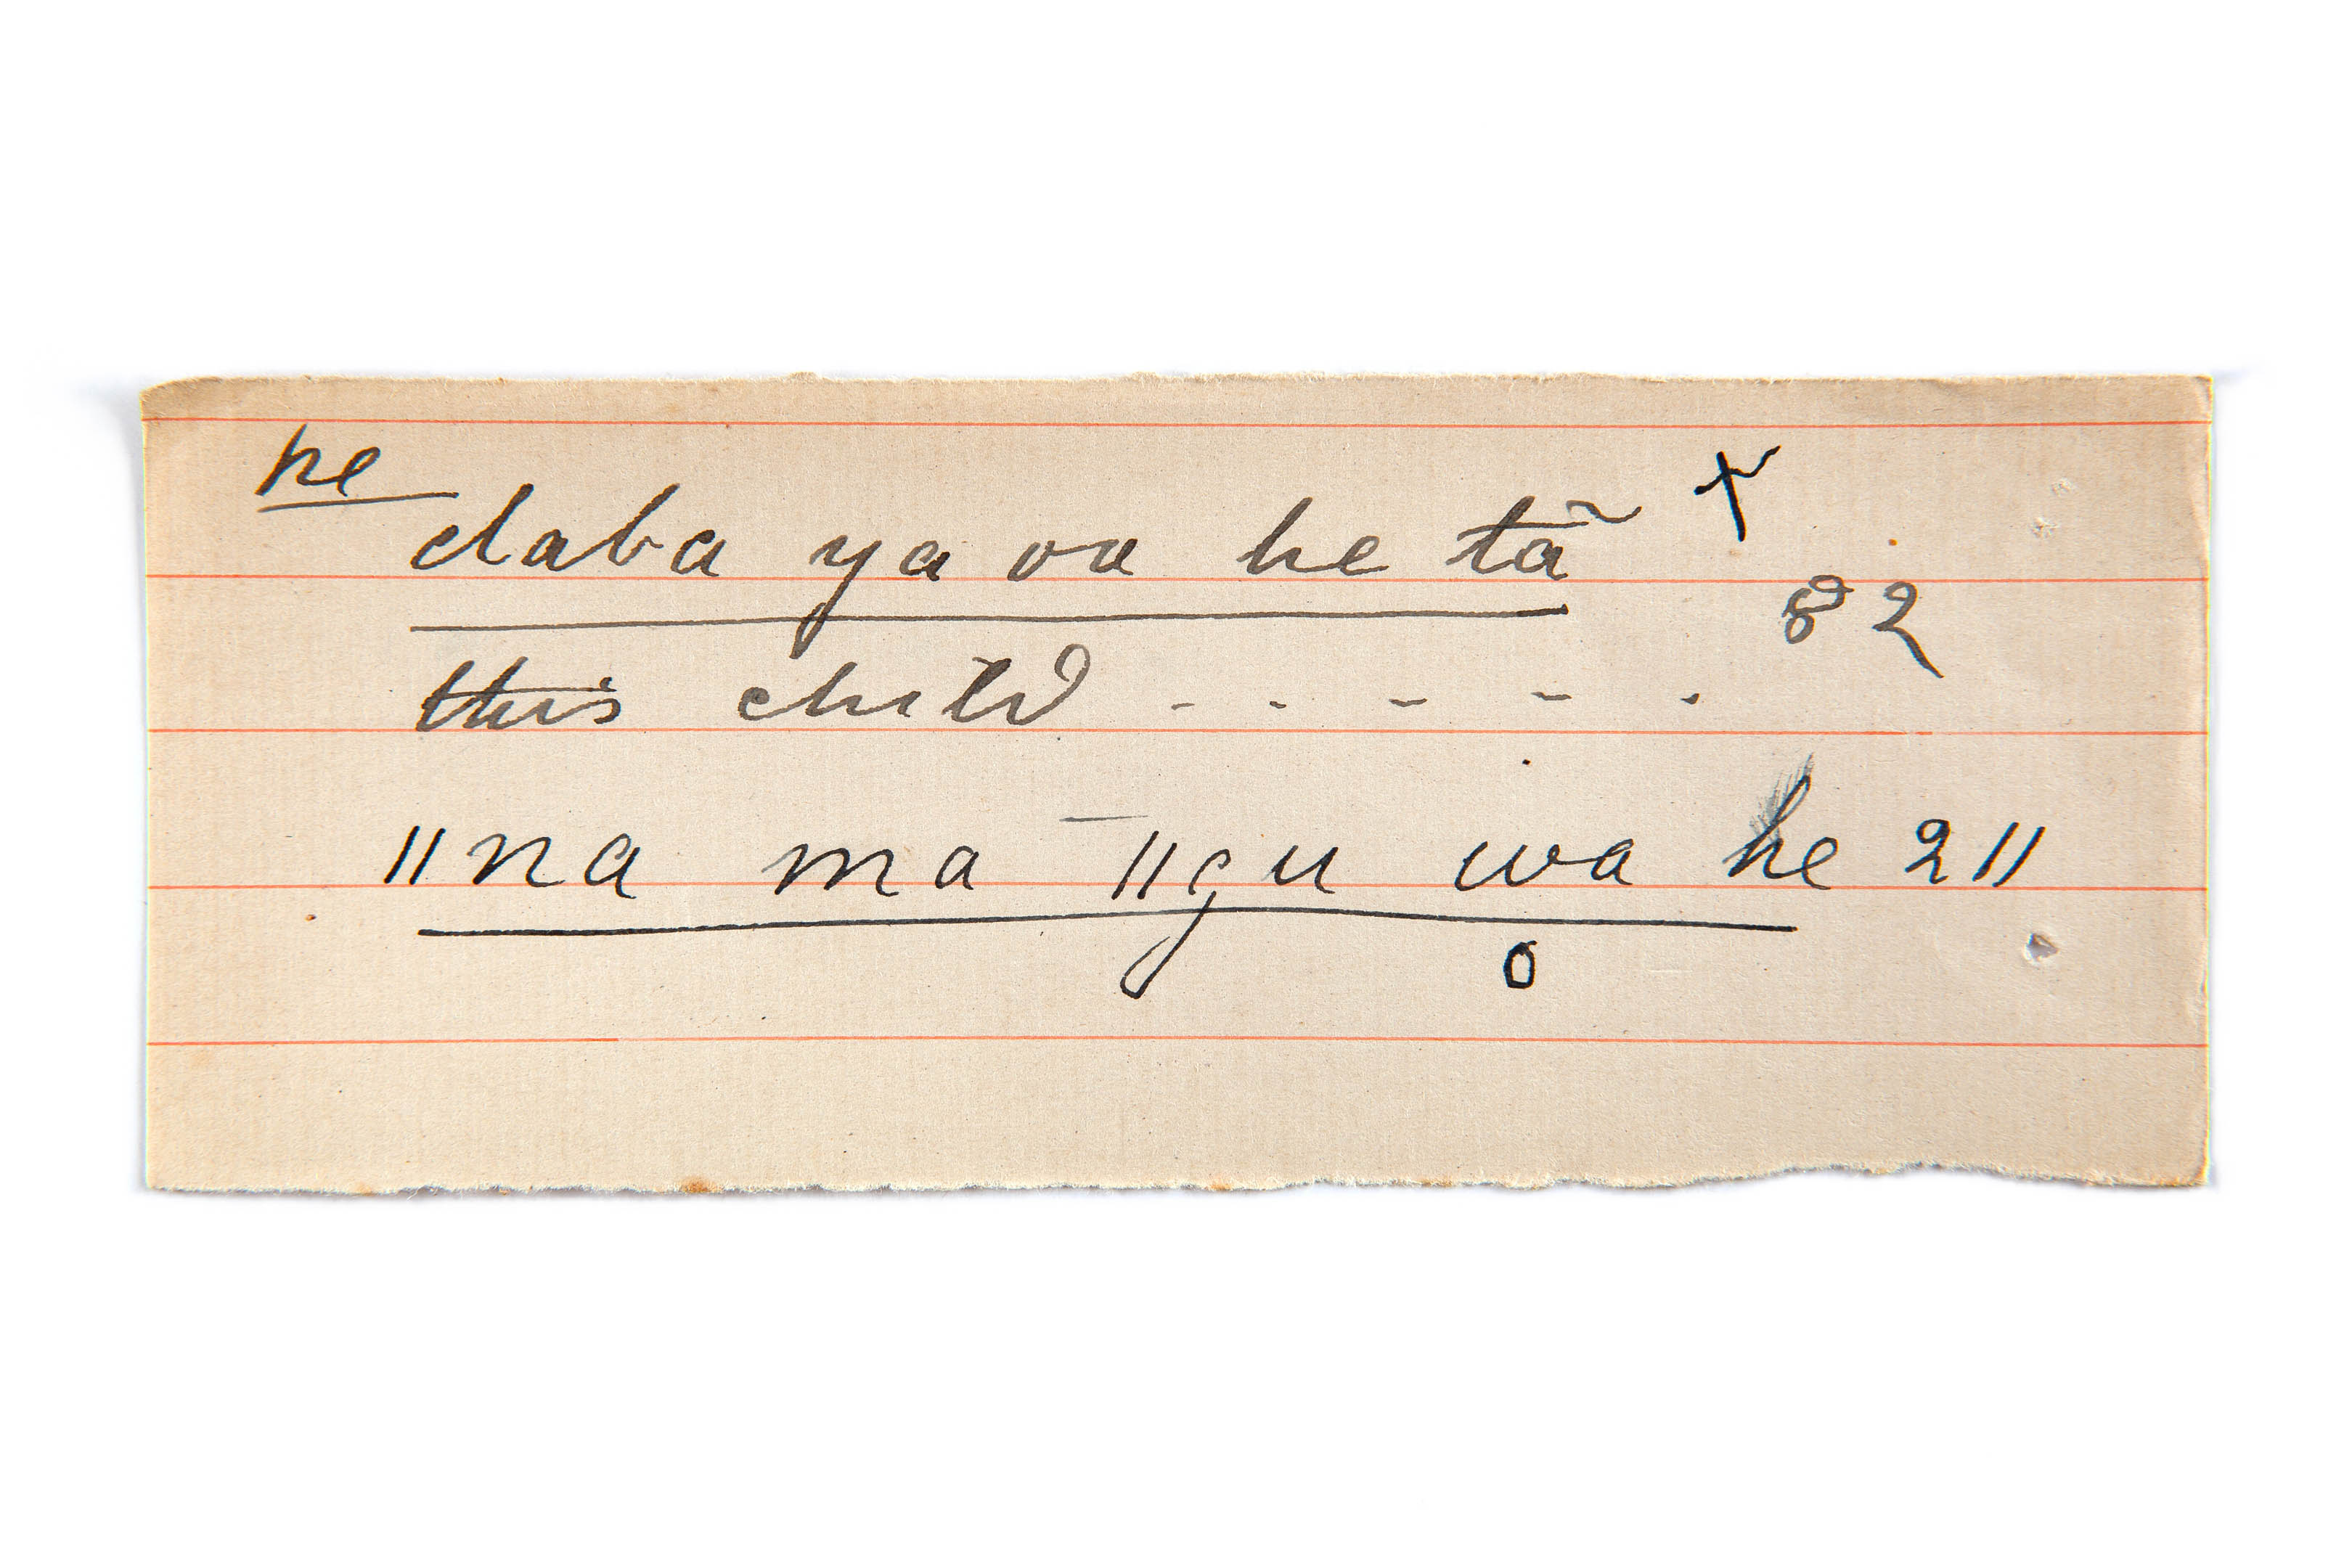 he
daba ya oa he tã x
82
this child - - - - .
ǁna ma ǁgu wa he 2ǁ
o